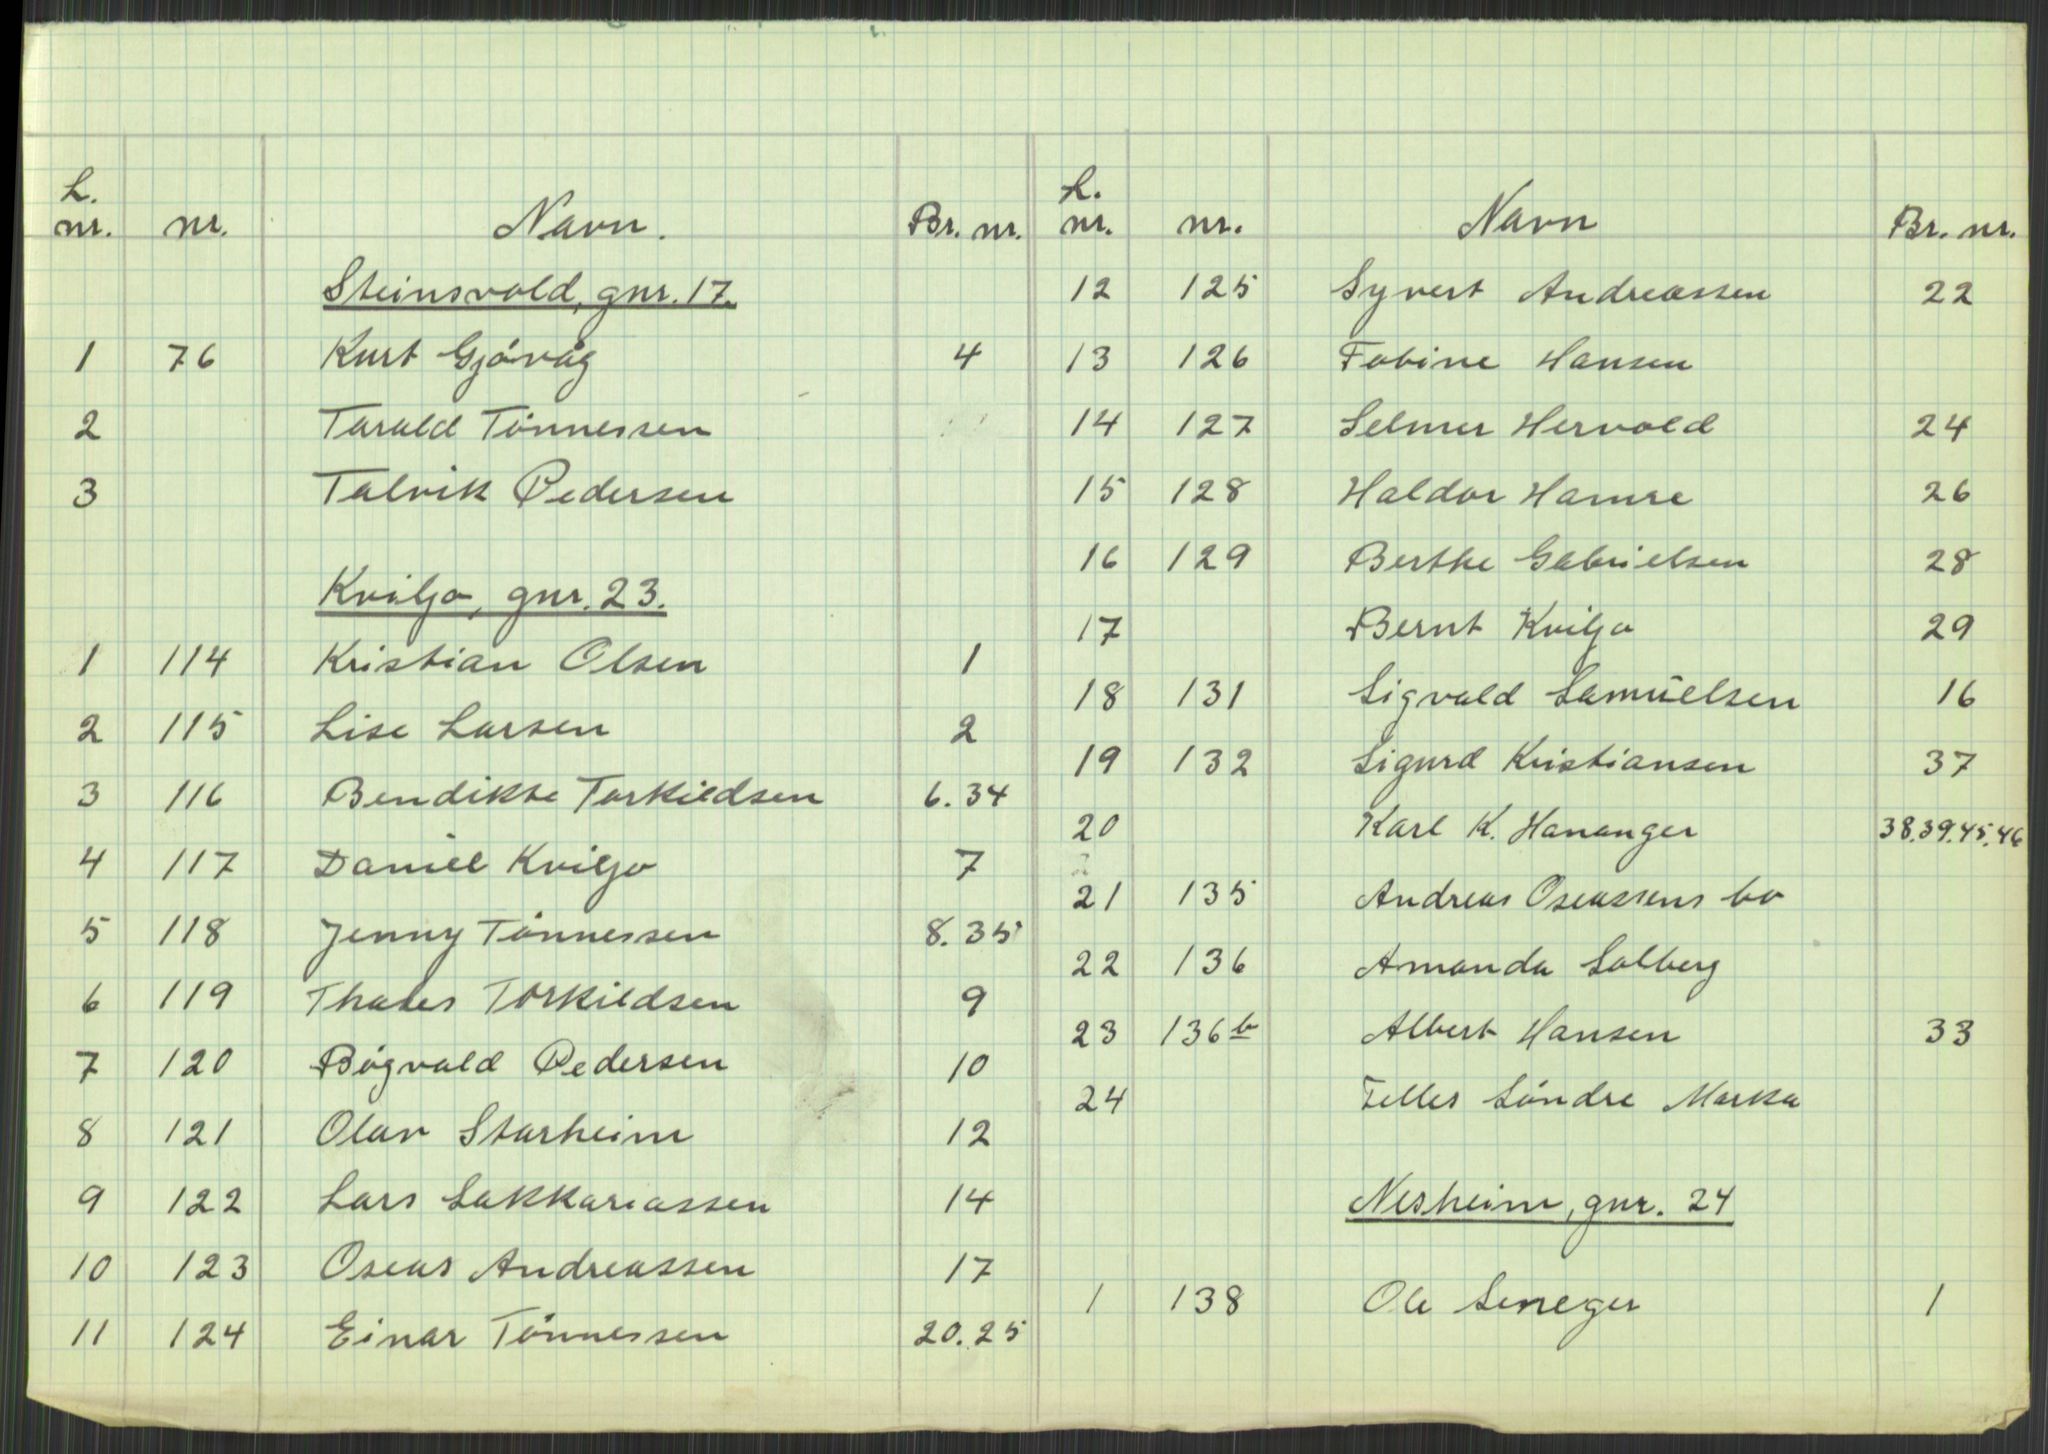 L.
nr. nr. Navn. Br. nr.
Steinsvold, gnr. 17.
1 76 Kurt Gjåvåg 4
2 Tarald Tönnessen
3 Talvik Pedersen
Kviljo, gnr. 23.
1 114 Kristian Olsen 1
2 115 Lise Larsen 2
3 116 Bendikte Torkildsen 6. 34
4 117 Daniel Kviljo 7
5 118 Jenny Tönnessen 8. 35
6 119 Torkildsen 9
7 120 Bögvald Pedersen 10
8 121 Olav Starheim 12
9 122 Lars Sakkariassen 14
10 123 Oseas Andreassen 17
11 124 Einar Tönnessen 20. 25
L.
nr. nr. Navn Br. nr.
12 125 Syvert Andreassen 22
13 126 Tobine Hansen
14 127 Selmer Hervold 24
15 128 Haldor Hamre 26
16 129 Berthe Gabrielsen 28
17 Bernt Kviljo 29
18 131 Sigvald Samuelsen 16
19 132 Sigurd Kristiansen 37
20 Karl K. Hananger 38.39.45.46
21 135 Andreas Oseassens bo
22 136 Amanda Solberg
23 136 b Albert Hansen 33
24 Felles Söndre Marka
Nesheim, gnr. 24
1 138 Ole 1